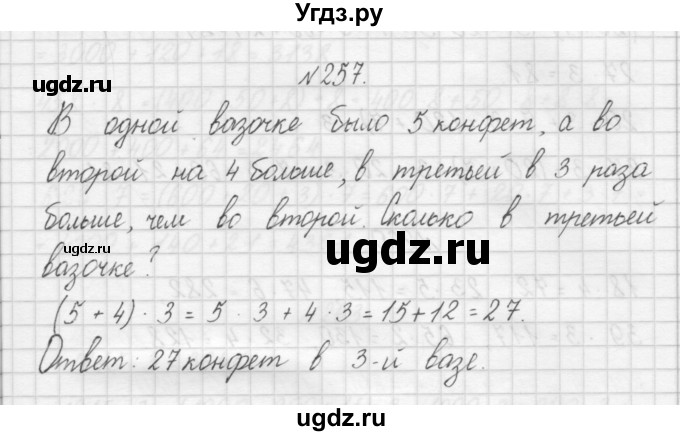 Угдз.ру
ugdz.ru
№257.
ugdz.ru
В одной вазочке было 5 конфет, а во
второй на 4 больше, в третьей в 3 раза
больше, чем во второй. Сколько в третьей
ugdz.ru
ugdz.ru
вазочке?
(5 + 4) · 3 = 5 · 3 + 4 · 3 = 15 + 12 = 27.
Ответ: 27 конфет в 3-й вазе.
ugdz.ru
ugdz.ru